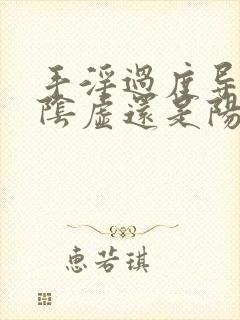 手淫過度导
陰虛還是陽
惠若琪